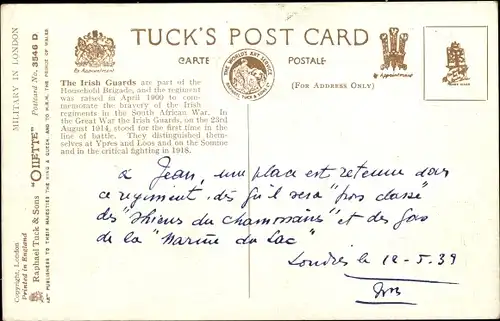 TUCK'S POST CARD
CARTE POSTALE
(FOR ADDRESS ONLY)
By Appointment
THE WORLD'S ART SERVICE
RAPHAEL TUCK & SONS LTD
By Appointment
The Irish Guards are part of the
Household Brigade, and the regiment
was raised in April 1900 to com-
memorate the bravery of the Irish
regiments in the South African War. In
the Great War the Irish Guards, on the 23rd
August 1914, stood for the first time in the
line of battle. They distinguished them-
selves at Ypres and Loos and on the Somme
and in the critical fighting in 1918.
MILITARY IN LONDON
Postcard No. 3546 D.
"OILETTE"
Raphael Tuck & Sons
ART PUBLISHERS TO THEIR MAJESTIES THE KING & QUEEN AND TO H.R.H. THE PRINCE OF WALES
Printed in England
Copyright, London
à Jean, une place est retenue dans
ce régiment, dès qu'il sera
des et des gars
de la "Marine du Lac"
Londres le 12-5-39